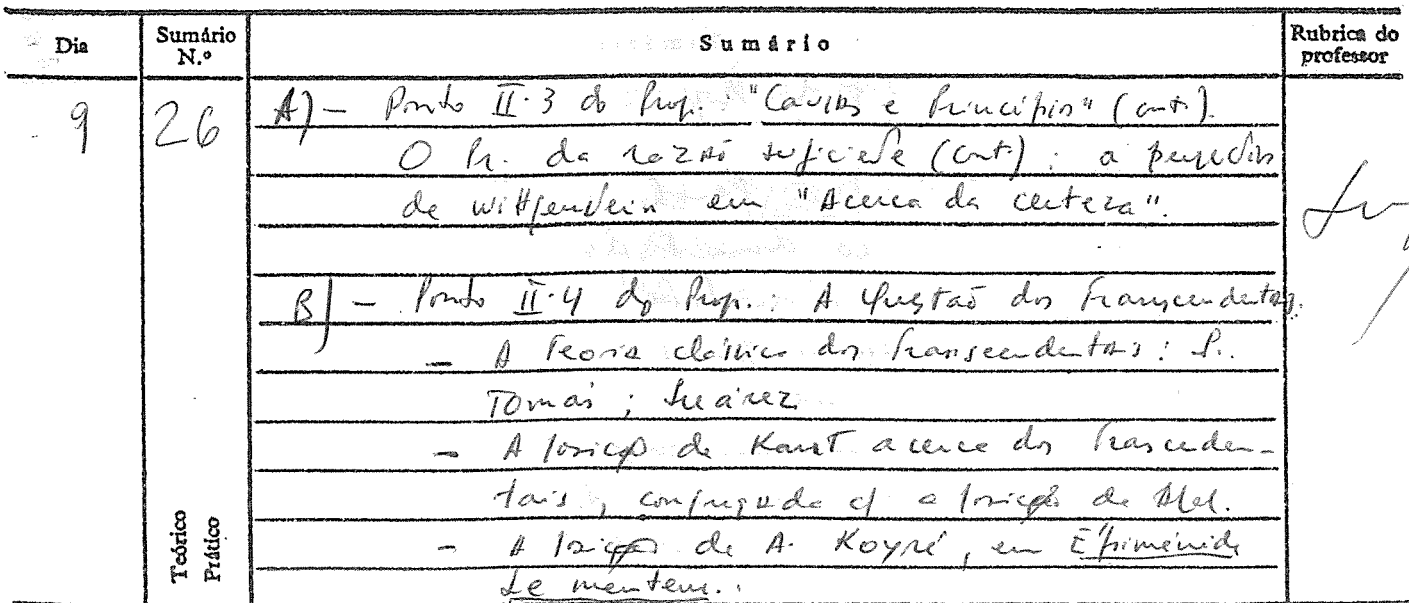 Dia
Sumário N.º
Sumário
Rubrica do professor
9
26
A) - Ponto II.3 do Prog.: "Causas e Princípios" (cont.).
O Pr. da razão suficiente (cont.): a perspectiva
de Wittgenstein em "Acerca da certeza".
B) - Ponto II.4 do Prog.: A Questão dos Transcendentais.
- A Teoria clássica dos Transcendentais: S.
Tomás; Suárez
- A posição de Kant acerca dos Trascenden-
tais, conjugada c/ a posição de
- A posição de A. Koyré, em Épiménide
Le menteur.
Teórico
Prático